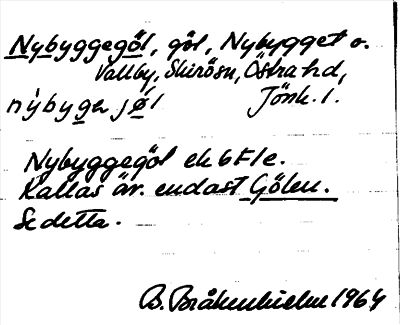 Nybyggegöl, göl, Nybygget o.
Vallby, Skirösn, Östra hd,
nybygajøl Jönk. l.
Nybyggegöl ek 6F1e.
Kallas är endast Gölen.
Se detta.
B. Bråkenhielm 1964